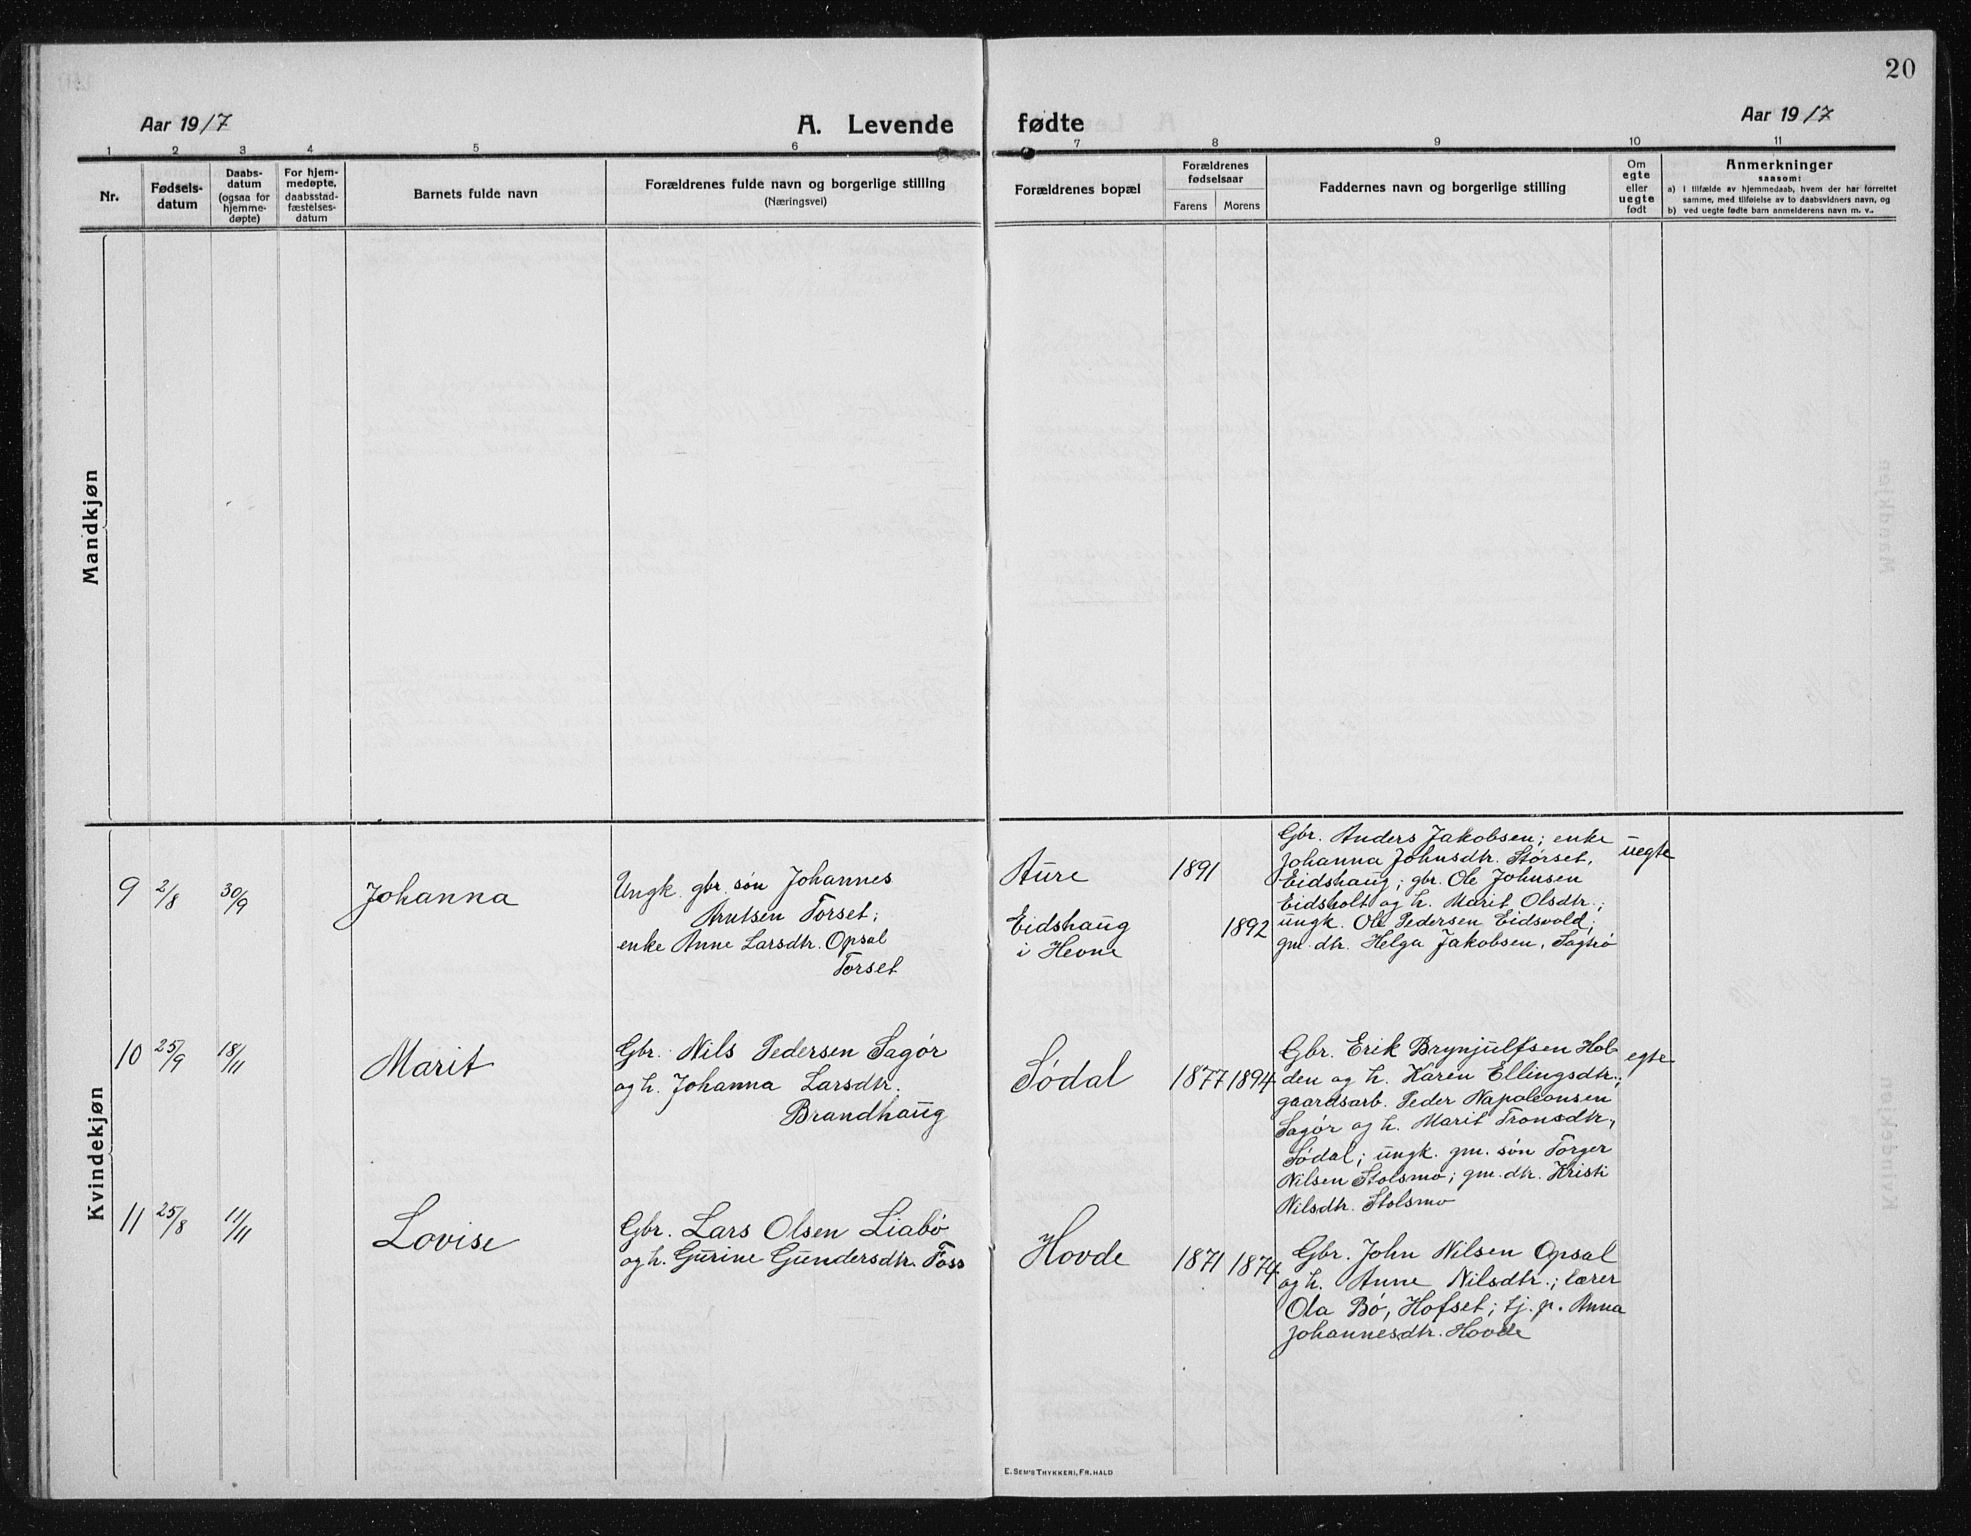 20
Aar 1917
A. Levende fødte
Aar 1917
1 2 3 4 5 6 7 8 9 10 11
Nr.
Fødsels-
datum
Daabs-
datum
(ogsaa for
hjemme-
døpte)
For hjem-
medøpte,
daabsstad-
fæstelses-
datum
Barnets fulde navn
Forældrenes fulde navn og borgerlige stilling
(Næringsvei)
Forældrenes bopæl
Forældrenes
fødselsaar
Farens Morens
Faddernes navn og borgerlige stilling
Om
egte
eller
uegte
født
Anmerkninger
saasom:
a) I tilfælde av hjemmedaab, hvem der har forrettet
samme, med tilføielse av to daabsvidners navn, og
b) ved uegte fødte barn anmelderens navn m. v..
Mandkjøn
Kvindekjøn
9 2/8 30/9
Johanna
Ungk. gbr. søn Johannes
Arntsen Torset;
enke Anne Larsdtr. Opsal
Torset
Aure
Eidshaug
i Hevne
1891
1892
Gbr. Anders Jakobsen; enke
Johanna Johnsdtr. Størset,
Eidshaug; gbr. Ole Johnsen
Eidsholt og h. Marit Olsdtr.;
ungk. Ole Pedersen Eidsvold;
gm. dtr. Helga Jakobsen,
uegte
10 25/9 18/11
Marit
Gbr. Nils Pedersen Sagør
og h. Johanna Larsdtr.
Brandhaug
Sødal
1877 1894
Gbr. Erik Brynjulfsen Hol-
den og h. Karen Ellingsdtr.;
gaardsarb. Peder Napoleonsen
Sagør og h. Marit Tronsdtr,
Sødal; ungk. gm. søn Torger
Nilsen Stolsmo; gm. dtr. Kristi
Nilsdtr. Stolsmo
egte
11 25/8 11/11
Lovise
Gbr. Lars Olsen Liabø
og h. Gurine Gundersdtr. Foss
Hovde
1871 1874
Gbr. John Nilsen Opsal
og h. Anne Nilsdtr.; lærer
Ola Bø, Hofset; tj. p. Anna
Johannesdtr. Hovde
E. Sem's Trykkeri, Fr. hald